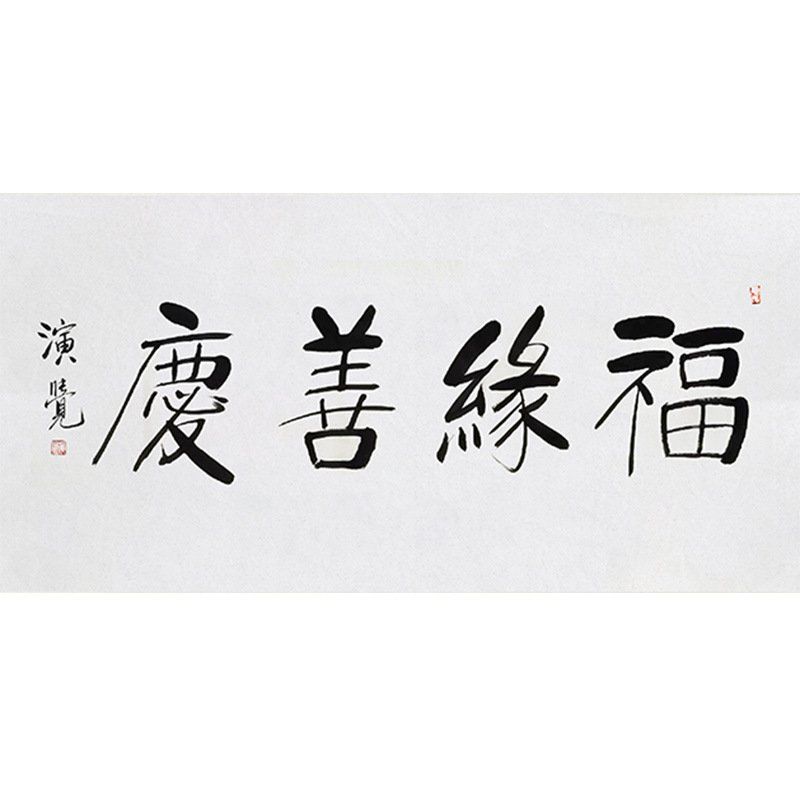 福緣善慶
演覺